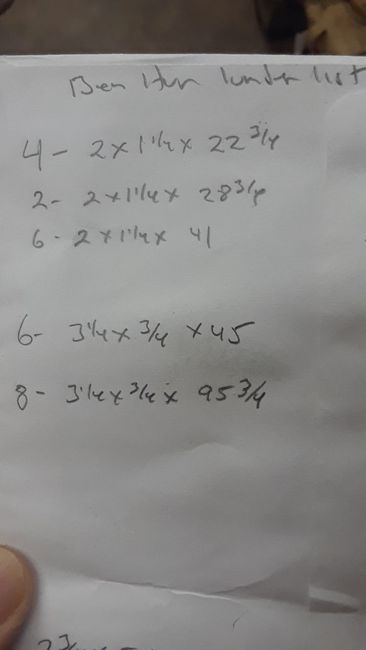 Ben Hur lumber list
4 - 2 x 1 1/4 x 22 3/4
2 - 2 x 1 1/4 x 28 3/4
6 - 2 x 1 1/4 x 41
6 - 3 1/4 x 3/4 x 45
8 - 3 1/4 x 3/4 x 95 3/4